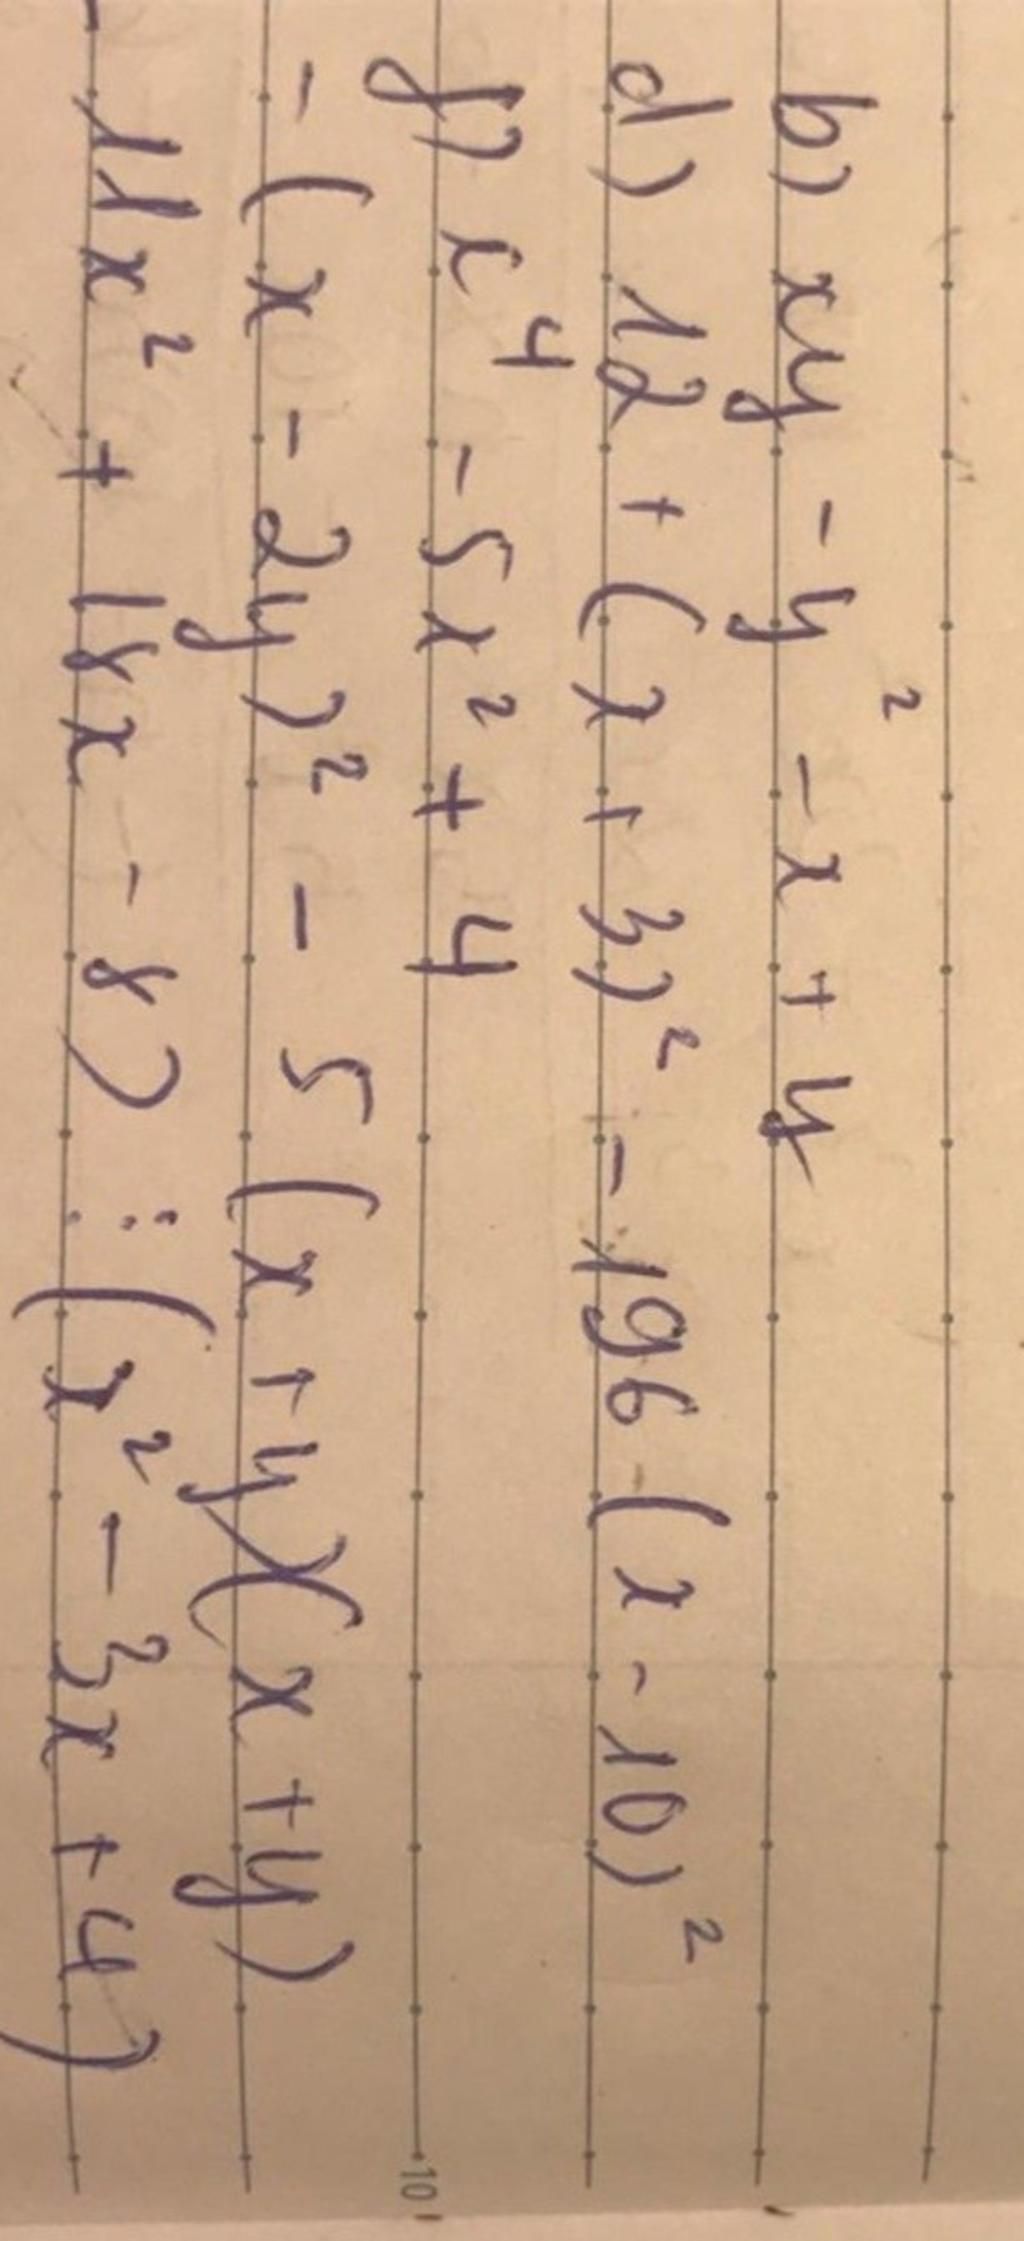 b) xy - y² - x + y
d) 12 + (x + 3)² - 196 (x - 10)²
f) x⁴ - 5x² + 4
- (x - 2y)² - 5 (x + y)(x + y)
- 11x² + 18x - 8) : (x² - 3x + 4)
10